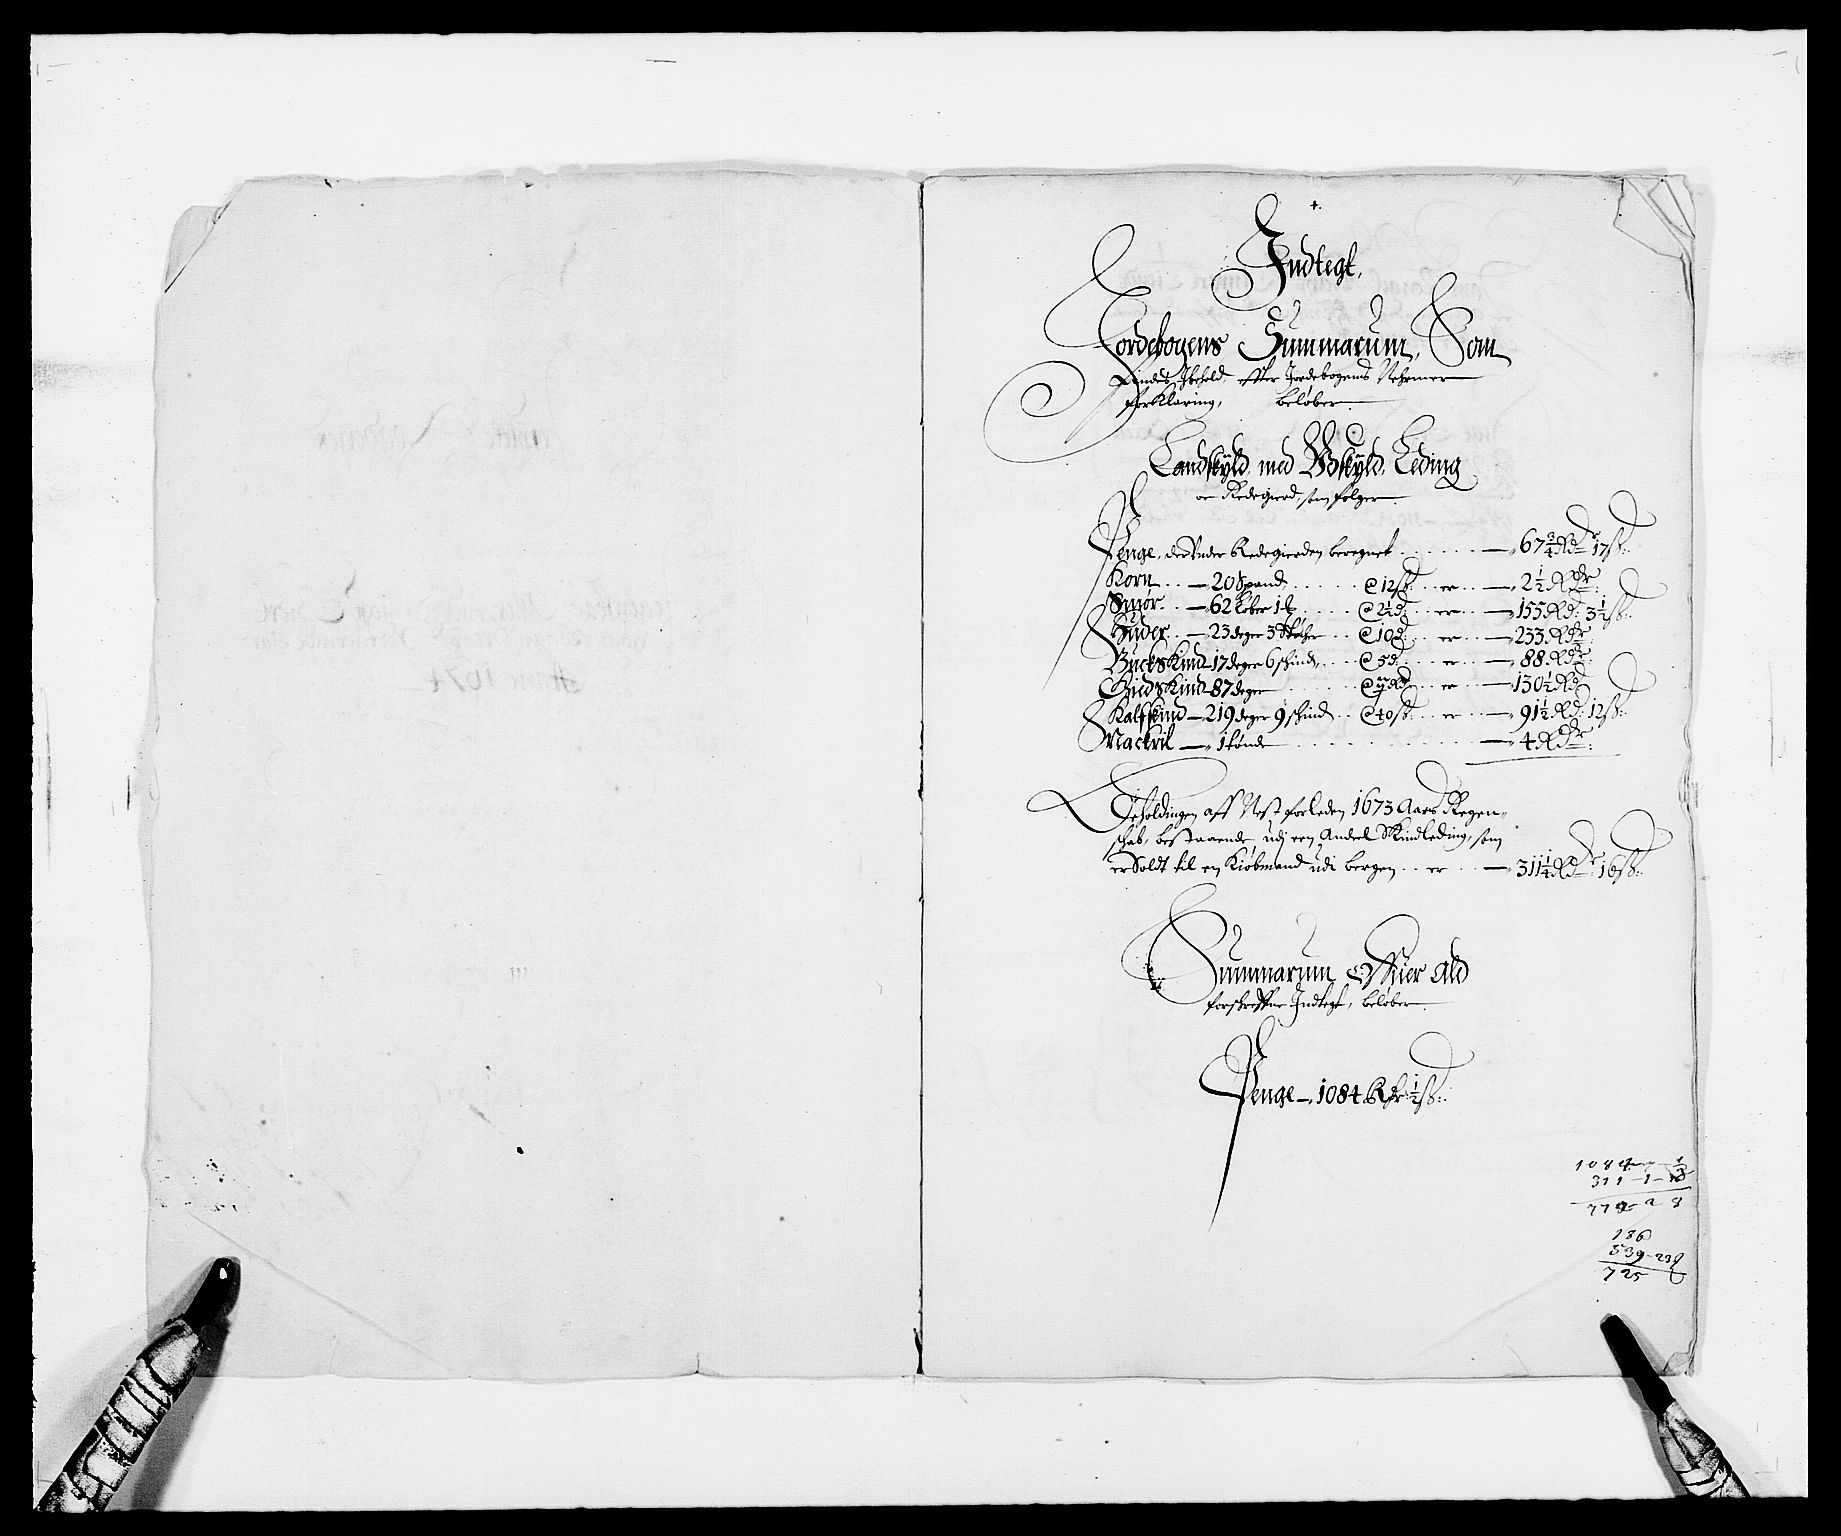 Indtegt,
Jordebogens Summarum, Som
findes Ibehold, effter Jordebogens Nehrmer
forklaring, beløber
Landskyld med Boskyld, Leding
oc Redegierd, som følger
Penge, der Under Redegierden beregnet — 67 3/4 Rdr 17 ß:
Korn — 20 Spand @ 12 ß er — 2 1/2 Rdr
Smør — 62 løber 1 @ 2 1/2 d er — 155 Rd 3 1/2 ß:
Huder — 23 deger 3 @ 10 d er — 233 Rdr
Buckskind — 17 deger 6 schind @ 5 d er — 88 Rdr
Giedskind — 87 deger @ Rd er — 130 1/2 Rd
Kalfskind — 219 deger 9 schind @ 40 ß er — 91 1/2 Rd 12 ß:
Mackril — 1 tønde — 4 Rdr
Beholdingen aff Nest forleden 1673 Aars Regen-
schab, bestaaende udj een Andeel Skindleding, som
er Soldt til en Kiøbmand udi bergen er — 311 1/4 Rdr 16 ß:
Summarum offuer Ald
forschreffne Indtegt, beløber
Penge — 1084 Rdr 1/2 ß:
1084
311 — 1 —
8
186
539 — 23
725